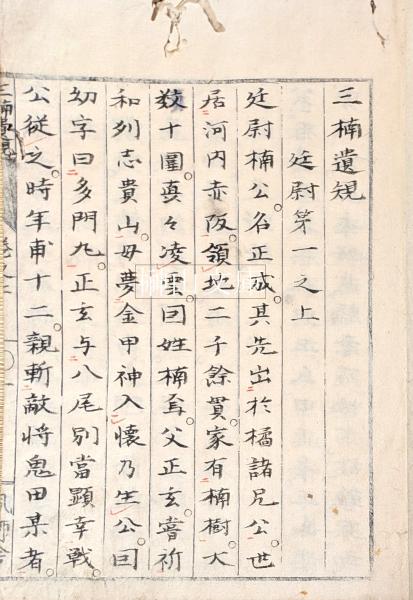 三楠遺規
廷尉第一之上
廷尉楠公名正成其先出於橘諸兄公世
居河内赤阪領地二千餘貫家有楠樹大
数十圍真々凌雲因姓楠爲父正玄嘗祈
和州志貴山毋夢金甲神入懐乃生公因
幼字曰多門九正玄与八尾別當顕幸戦
公従之時年甫十二親斬敵将鬼田某者
三楠遺規